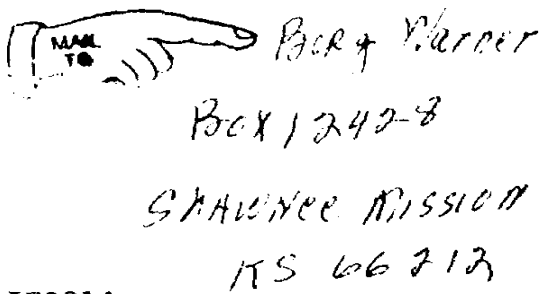 MAIL
TO
Borg Warner
Box 1242-8
Shawnee Mission
KS 66212